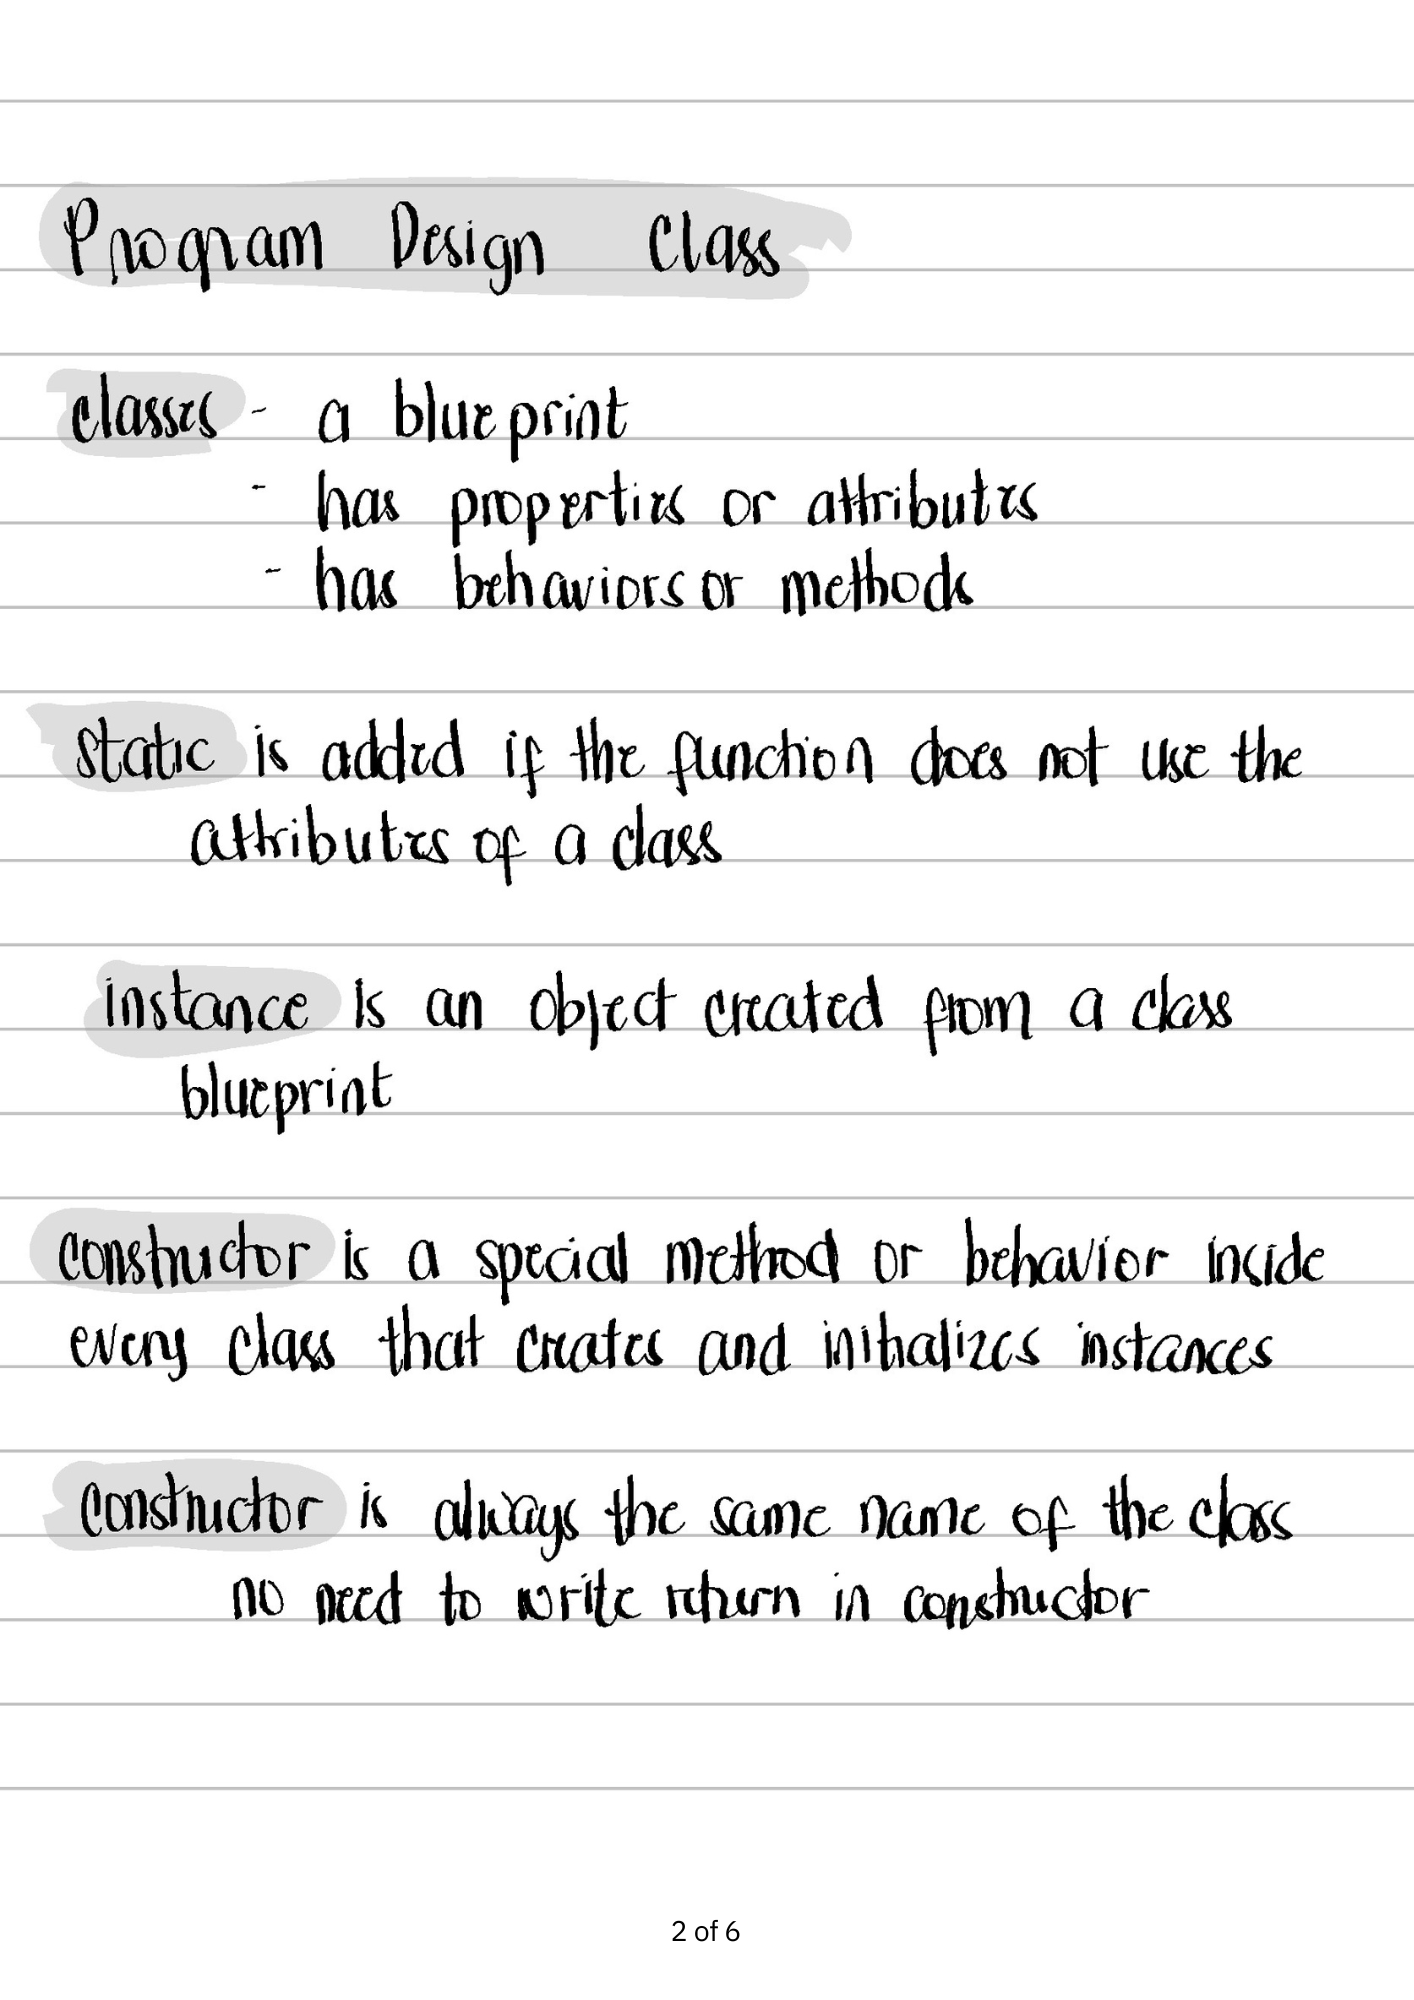 Program Design Class
classes - a blueprint
- has properties or attributes
- has behaviors or methods
static is added if the function does not use the
attributes of a class
instance is an object created from a class
blueprint
constructor is a special method or behavior inside
every class that creates and initializes instances
constructor is always the same name of the class
no need to write return in constructor
2 of 6